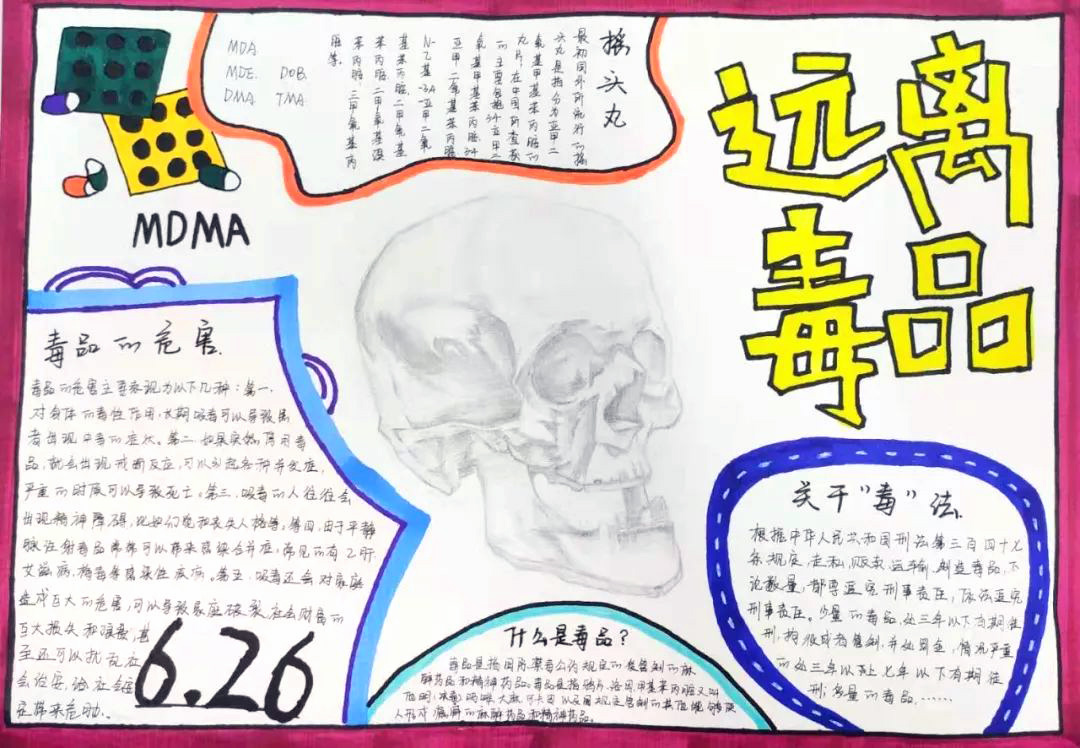 远离
毒品
摇头丸
最初国外所流行的摇
头丸是指成分为亚甲二
氧基甲基苯丙胺的
丸片,在中国所查获
的主要包括34亚甲二
氧基甲基苯丙胺34
亚甲二氧基苯丙胺
N-乙基-34-亚甲二氧
基苯丙胺.二甲氧基
苯丙胺二甲氧基溴
苯丙胺.三甲氧基苯丙
胺等.
MDA.
MDE. DOB.
DMA TMA
MDMA
毒品的危害.
毒品的危害主要表现为以下几种:第一.
对身体的毒性作用.长期吸毒可以导致患
者出现中毒的症状。第二.如果突然停用毒
品,就会出现戒断反应,可以引起各种并发症,
严重的时候可以导致死亡。第三,吸毒的人往往会
出现精神障碍,比如幻觉和丧失人格等。第四.由于平静
脉注射毒品常常可以带来感染合并症,常见的有乙肝
艾滋病,梅毒等感染性疾病。第五,吸毒还会对家庭
造成巨大的危害,可以导致家庭破裂社会财富的
巨大损失和浪费,甚
至还可以扰乱社
会治安,给社会稳
定带来危胁.
6.26
什么是毒品?
毒品是指国际禁毒公约规定的受管制的麻
醉药品和精神药品。毒品是指鸦片、海洛因.甲基苯丙胺又叫
冰毒 吗啡 大麻 可卡因以及国规定管制的其他能够使
人形成瘾癖的麻醉药品和精神药品。
关于“毒”法.
根据中华人民共和国刑法第三百四十七
条规定,走私,贩卖.运输.制造毒品,不
论数量,都要追究刑事责任,依法追究
刑事责任。少量的毒品,处三年以下有期徒
刑,拘役或者管制,并处罚金,情况严重
的处三年以上七年以下有期徒
刑.多量的毒品.……